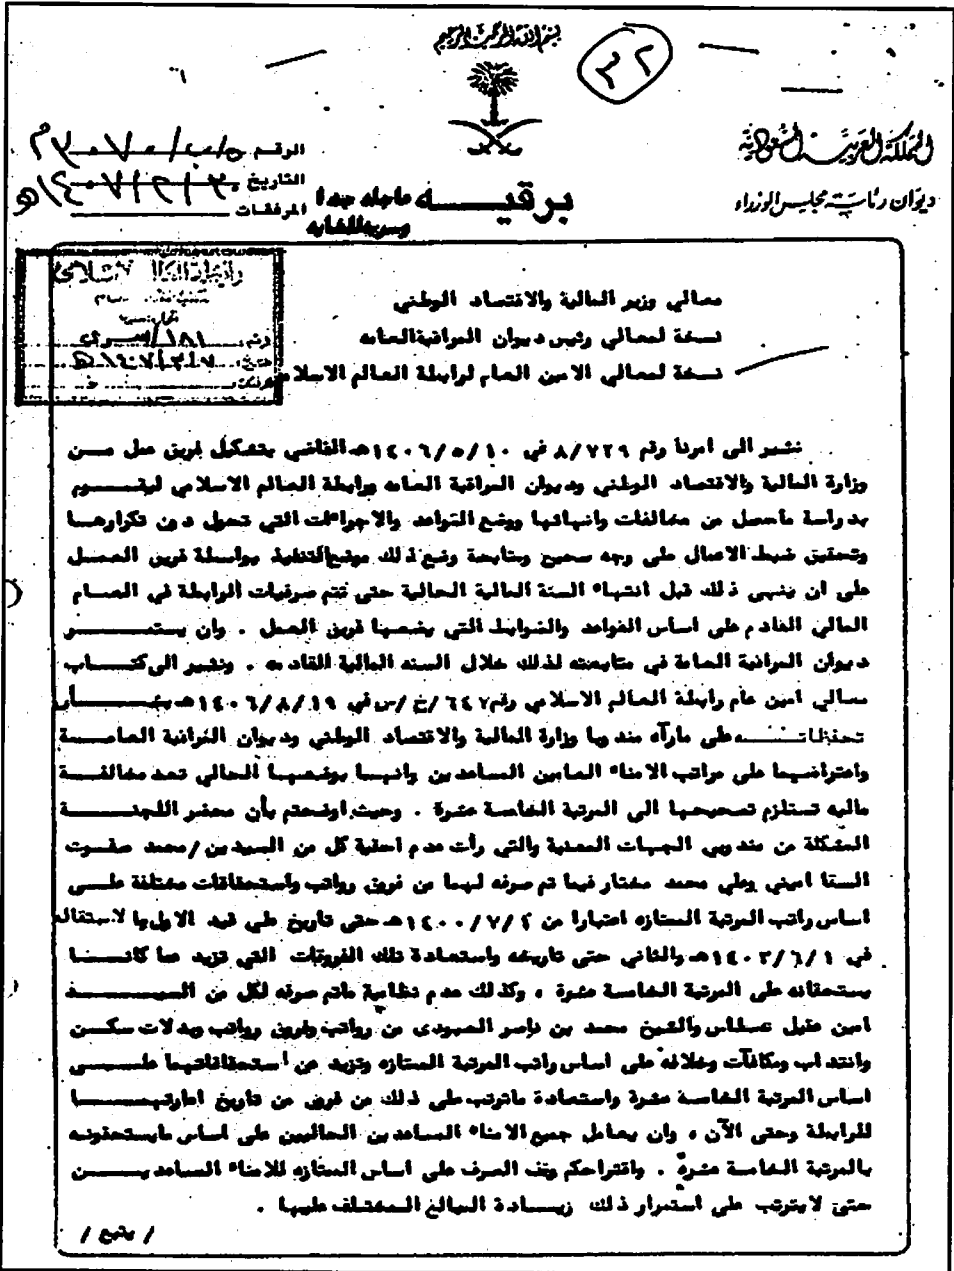 بسم الله الرحمن الرحيم
٣٢
المملكة العربية السعودية
ديوان رئاسة مجلس الوزراء
الرقم ٥/ب/٣٠٧٠م
التاريخ ٣٠/٢/١٤٠٧هـ
المرفقات
برقيـــــه عاجله جدا
وسرية للغايه
رابطة العالم الاسلامي
رقم: ١٨١/سري
تاريخ: ١٤٠٧/٣/٧هـ
معالي وزير المالية والاقتصاد الوطني
نسخة لمعالي رئيس ديوان المراقبة العامه
نسخة لمعالي الامين العام لرابطة العالم الاسلامي
نشير الى امرنا رقم ٨/٧٢٩ في ١٤٠٦/٥/١٠هـ القاضي بتشكيل فريق عمل مــن
وزارة المالية والاقتصاد الوطني وديوان المراقبة العامه ورابطة العالم الاسلامي ليقــوم
بدراسة ماحصل من مخالفات وانهائها ووضع القواعد والاجراءات التي تحول دون تكرارهــا
وتحقيق ضبط الاعمال على وجه صحيح ومتابعة وضع ذلك موضع التنفيذ بواسطة فريق العمــل
على ان ينهى ذلك قبل انتهاء السنة المالية الحالية حتى تتم صرفيات الرابطة في العــام
المالي القادم على اساس القواعد والضوابط التي يضعها فريق العمل . وان يستمــــر
ديوان المراقبة العامة في متابعته لذلك خلال السنه المالية القادمه . ونشير الى كتــاب
معالي امين عام رابطة العالم الاسلامي رقم ٦٤٧/خ/س في ١٤٠٦/٨/١٩هـ بشــــأن
تحفظاتــــه على مارآه مندوبا وزارة المالية والاقتصاد الوطني وديوان المراقبة العامــة
واعتراضهما على مراتب الامناء العامين المساعدين وانهــا بوضعهــا الحالي تعد مخالفــة
ماليه تستلزم تصحيحهــا الى المرتبة الخامسة عشرة . وحيث اوضحتم بأن محضر اللجنــــة
المشكلة من مندوبي الجهات المعنية والتي رأت عدم احقية كل من السيدين/محمد صفــوت
السقا اميني وعلي محمد مختار فيما تم صرفه لهما من فروق رواتب واستحقاقات مختلفة علــى
اساس راتب المرتبة الممتازه اعتبارا من ١٤٠٠/٧/٤هـ حتى تاريخ طي قيد الاول بالاستقاله
في ١٤٠٣/٦/١هـ والثاني حتى تاريخه واستعادة تلك الفروقات التي تزيد عما كانــــا
يستحقانه على المرتبة الخامسة عشرة ، وكذلك عدم نظامية ماتم صرفه لكل من السيــــد
امين عقيل عطاس والشيخ محمد بن ناصر العبودى من رواتب وفروق رواتب وبدلات سكــن
وانتداب ومكافآت وخلافه على اساس راتب المرتبة الممتازه وتزيد عن استحقاقاتهما علــــى
اساس المرتبة الخامسة عشرة واستعادة ماترتب على ذلك من فروق من تاريخ اعارتهمــــا
للرابطة وحتى الآن ، وان يعامل جميع الامناء المساعدين الحاليين على اساس مايستحقونــه
بالمرتبة الخامسة عشرة . واقتراحكم وقف الصرف على اساس الممتازه للامناء المساعديــــن
حتى لايترتب على استمرار ذلك زيــادة المبالغ المختلف عليهــا .
/ يتبع /